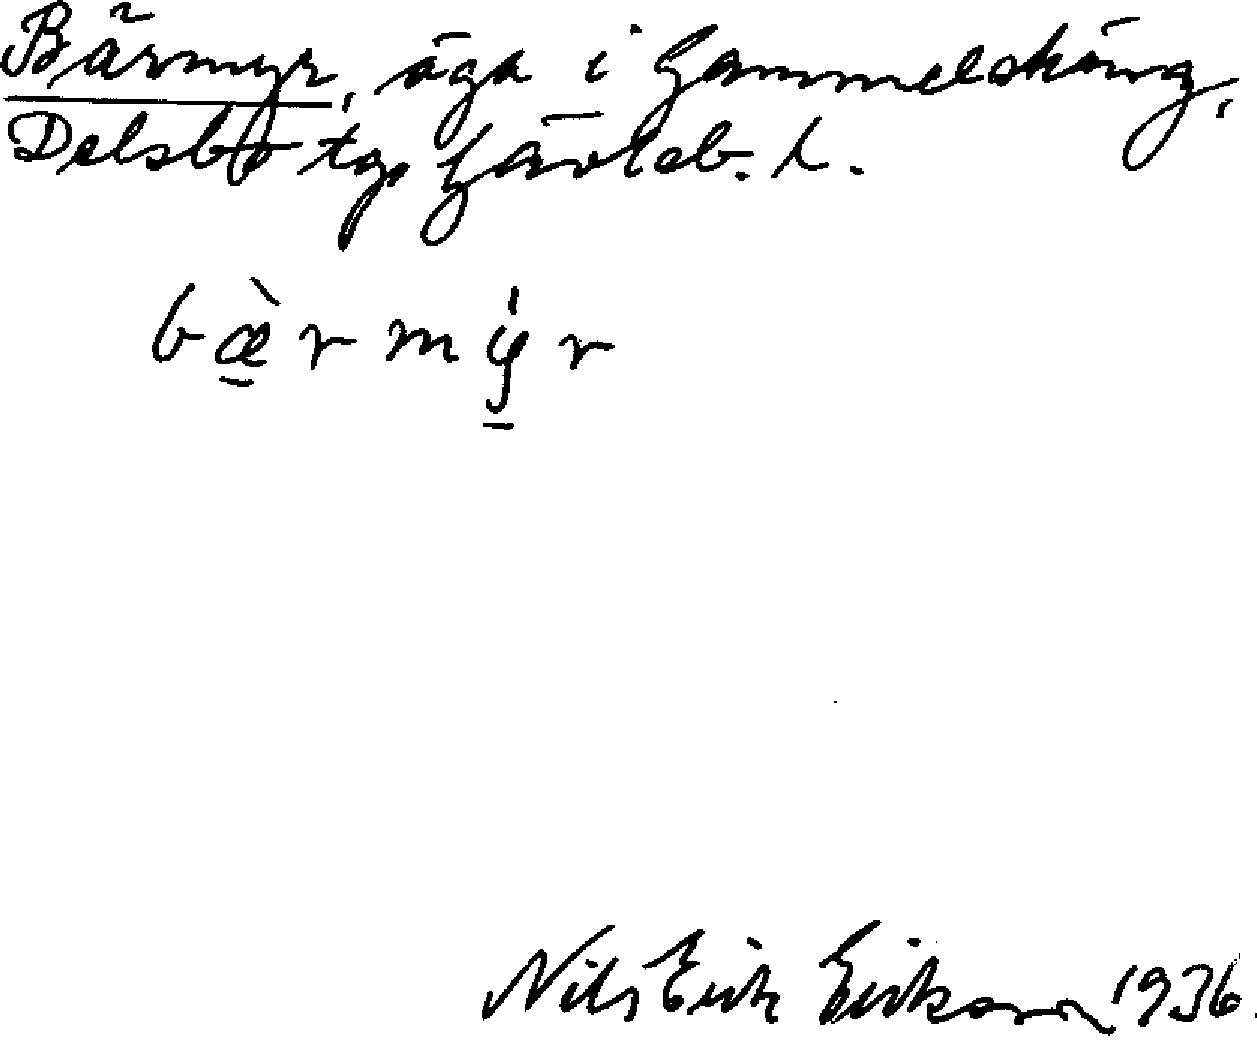 Bärmyr, äga i Gammelsäng,
Delsbo tg, Gävleb. l.
bæ̀rmýr
Nils Erik Erikson 1936.